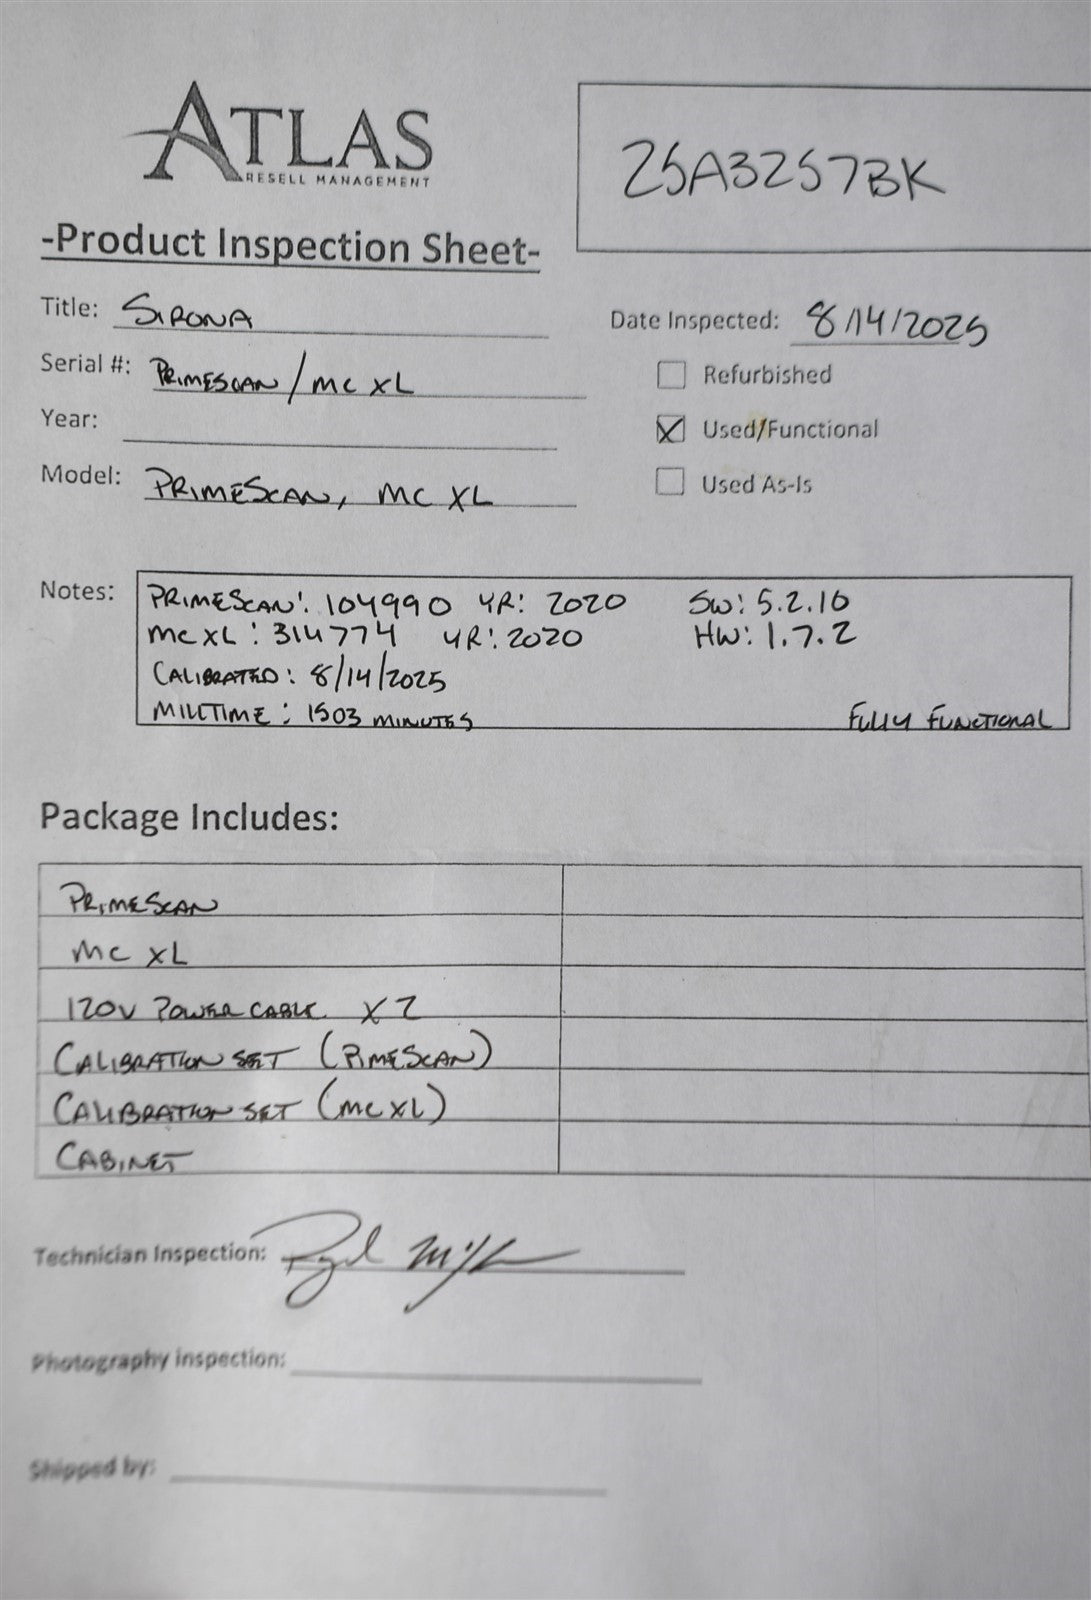 ATLAS
RESELL MANAGEMENT
25A3257BK
-Product Inspection Sheet-
Title: SIRONA
Date Inspected: 8/14/2025
Serial #: PRIMESCAN / MC XL
Refurbished
Year:
Used/Functional
Model: PRIMESCAN, MC XL
Used As-Is
Notes:
PRIMESCAN: 104990 YR: 2020 SW: 5.2.10
MC XL: 314774 YR: 2020 HW: 1.7.2
CALIBRATED: 8/14/2025
MILLTIME: 1503 MINUTES FULLY FUNCTIONAL
Package Includes:
PRIMESCAN
MC XL
120V POWER CABLE X2
CALIBRATION SET (PIMESCAN)
CALIBRATION SET (MCXL)
CABINET
Technician Inspection:
Photography inspection:
Shipped by: